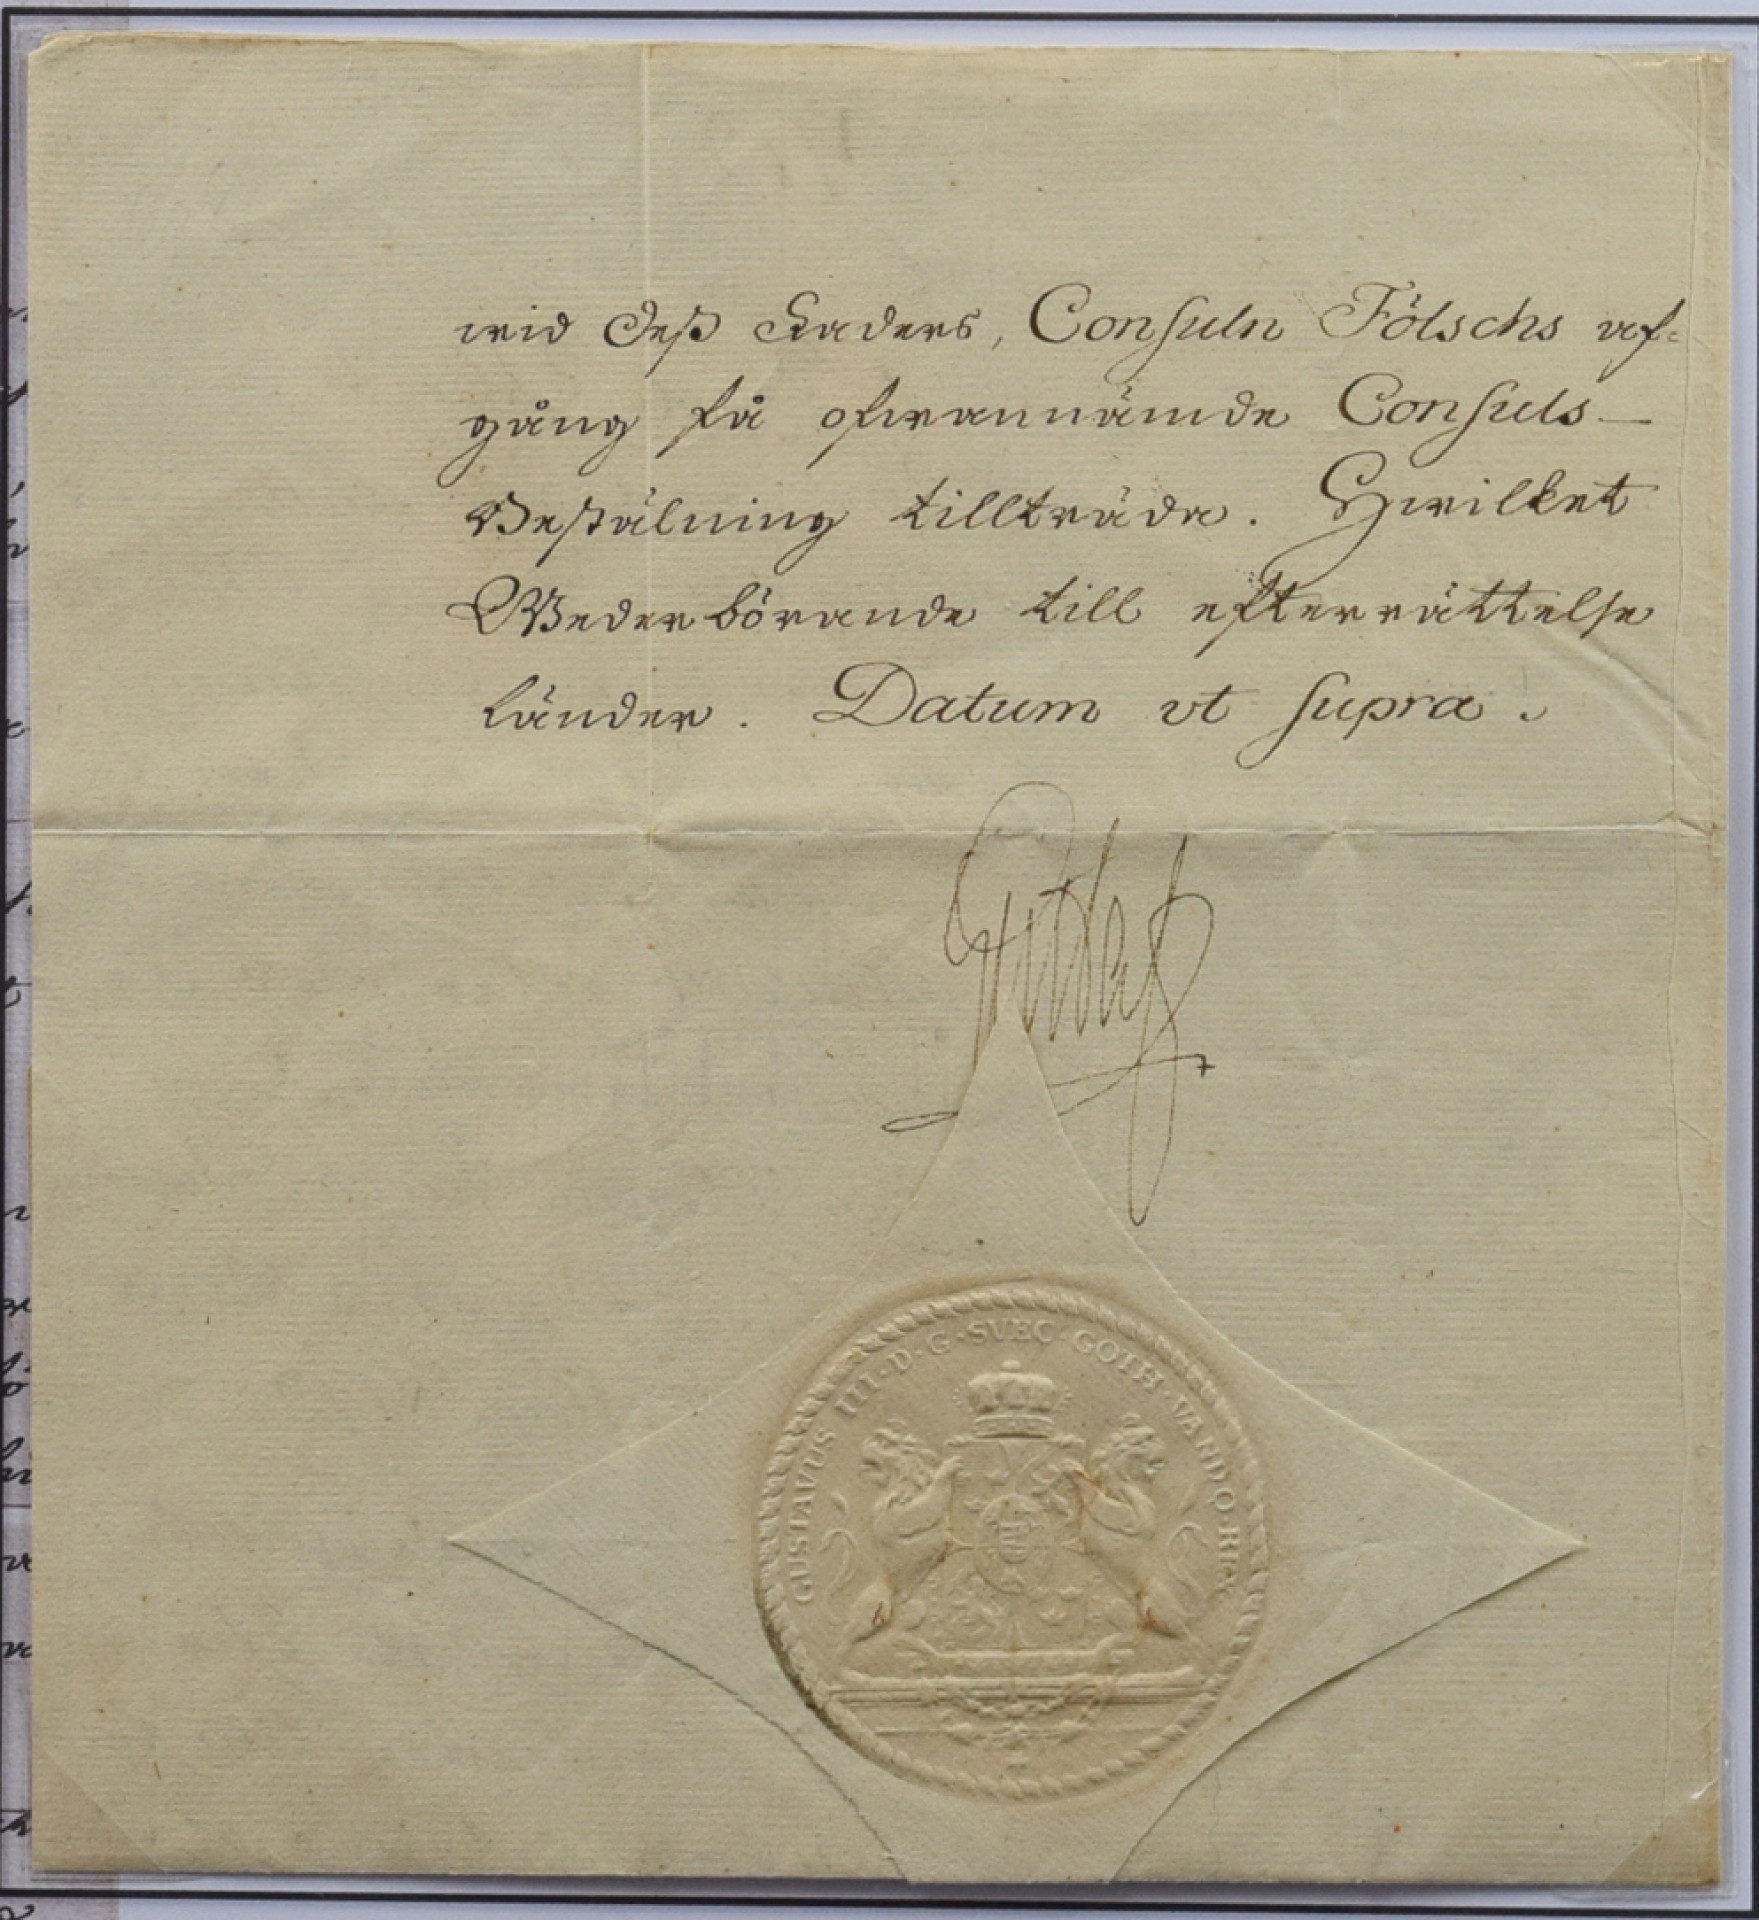 wid Deß Faders, Consuln Fölschs af=
gång få ofwannämde Consuls-
Bestälning tillträda. Hwilket
Wederbörande till efterrättelse
länder. Datum ut supra.
Gustaf
GUSTAVUS III · D · G · SVEC · GOTH · VANDQ · REX